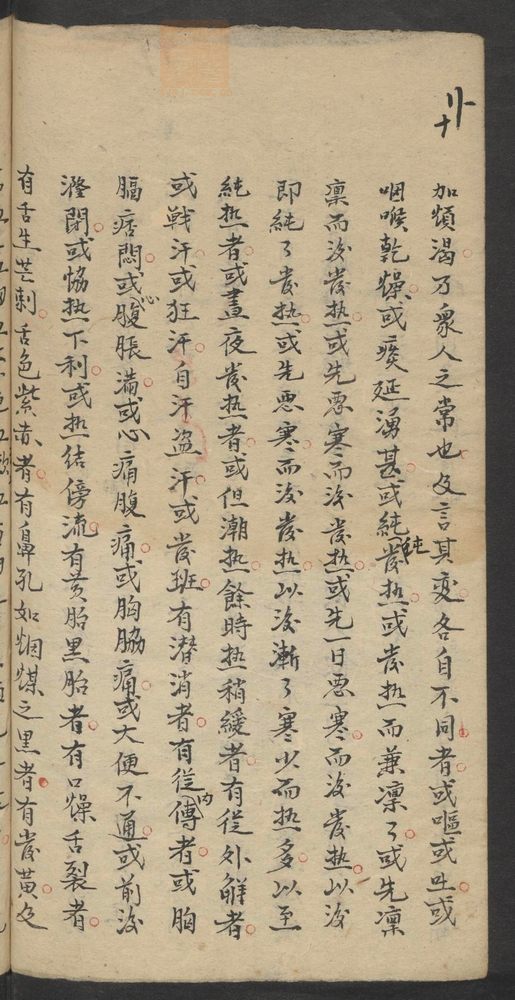 卄
加煩渴乃衆人之常也及言其变各自不同者或嘔或吐或
咽喉乾燥或痰延湧甚或純純發热或发热而兼凛々或先凛
凛而後发热或先悪寒而後发热或先一日悪寒而後发热以後
即純々发热或先悪寒而後发热以後漸々寒少而热多以至
純热者或晝夜发热者或但潮热餘時热稍緩者有従外觧者
或戦汗或狂汗自汗盗汗或发班有潜消者有従内傳者或胸
膈痞悶或心腹脹满或心痛腹痛或胸脇痛或大便不通或前後
癃閉或恊热下利或热结傍流有黄胎黑胎者有口燥舌裂者
有舌生芒刺舌色紫赤者有鼻孔如烟煤之黑者有发黄及